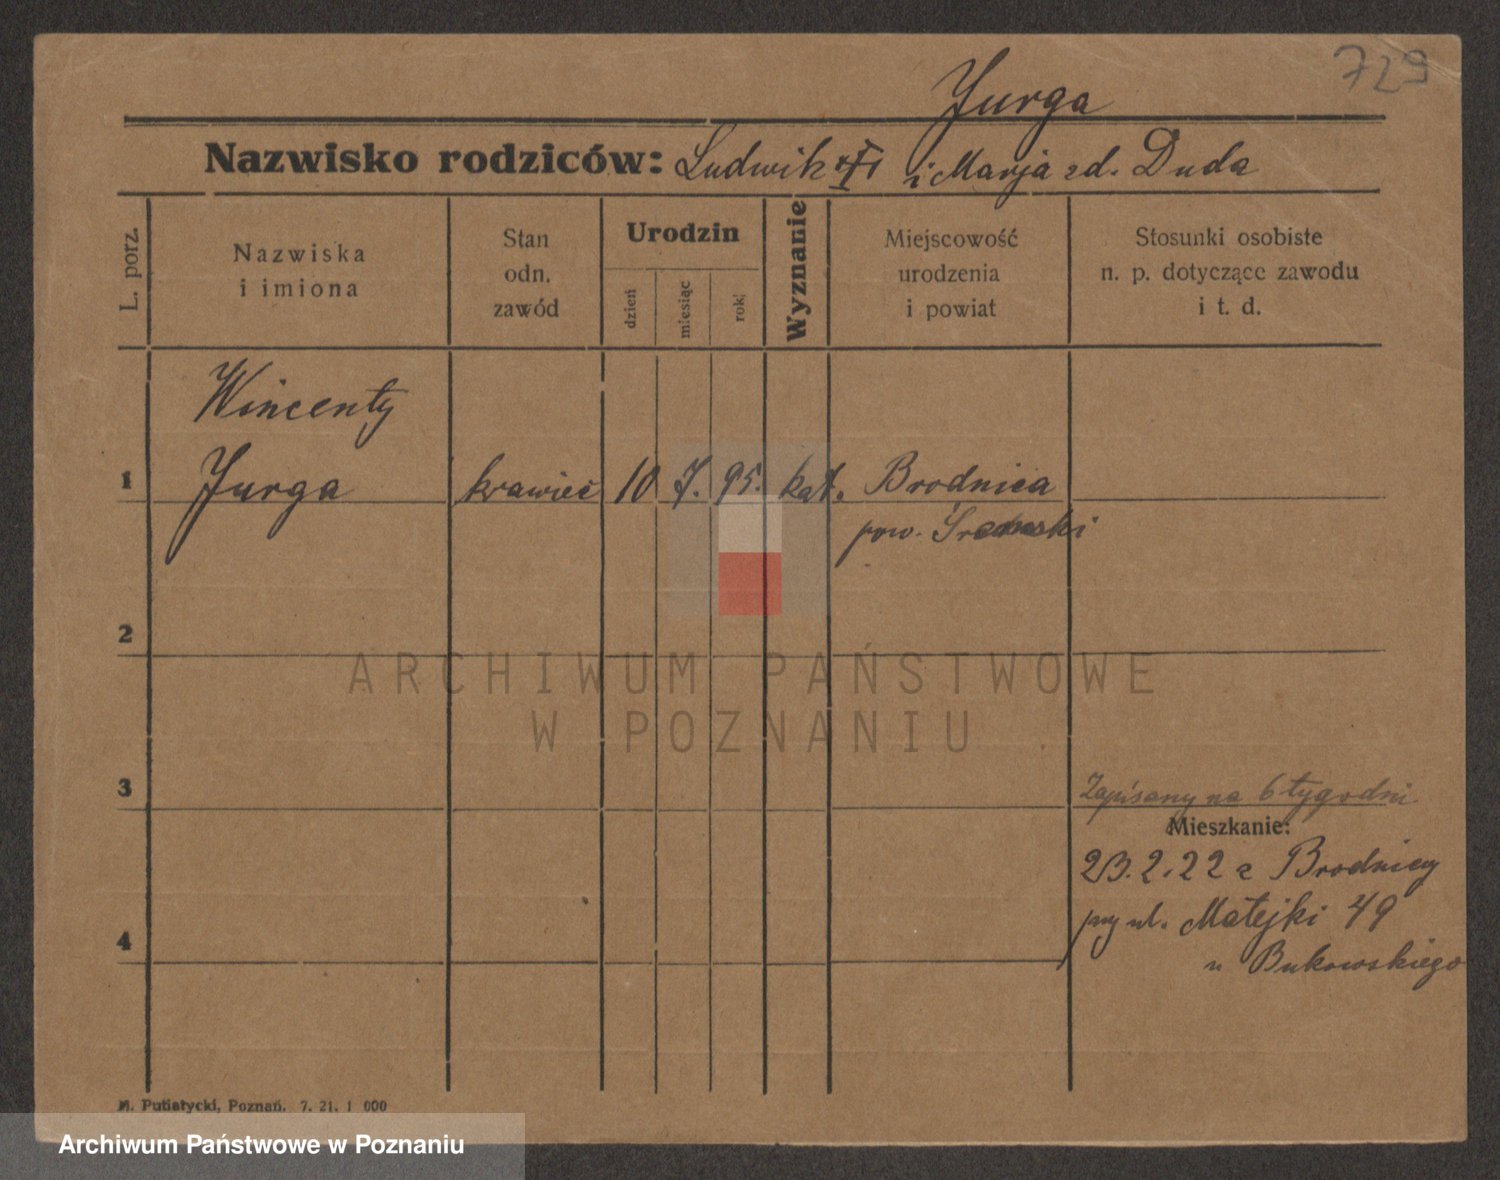 729
Jurga
Nazwisko rodziców: Ludwik i Marja zd. Duda
L. porz.
Nazwiska
i imiona
Stan
odn.
zawód
Urodzin
dzień
miesiąc
rok
Wyznanie
Miejscowość
urodzenia
i powiat
Stosunki osobiste
n. p. dotyczące zawodu
i t. d.
Wincenty
1 Jurga krawiec 10 7. 95. kat. Brodnica
pow. Śremski
2
ARCHIWUM PAŃSTWOWE
W POZNANIU
3 Zapisany na 6 tygodni
Mieszkanie:
23.2.22 z Brodnicy
przy ul. Matejki 49
4 u Bukowskiego
M. Putiatycki, Poznań. 7. 21. 1 000
Archiwum Państwowe w Poznaniu